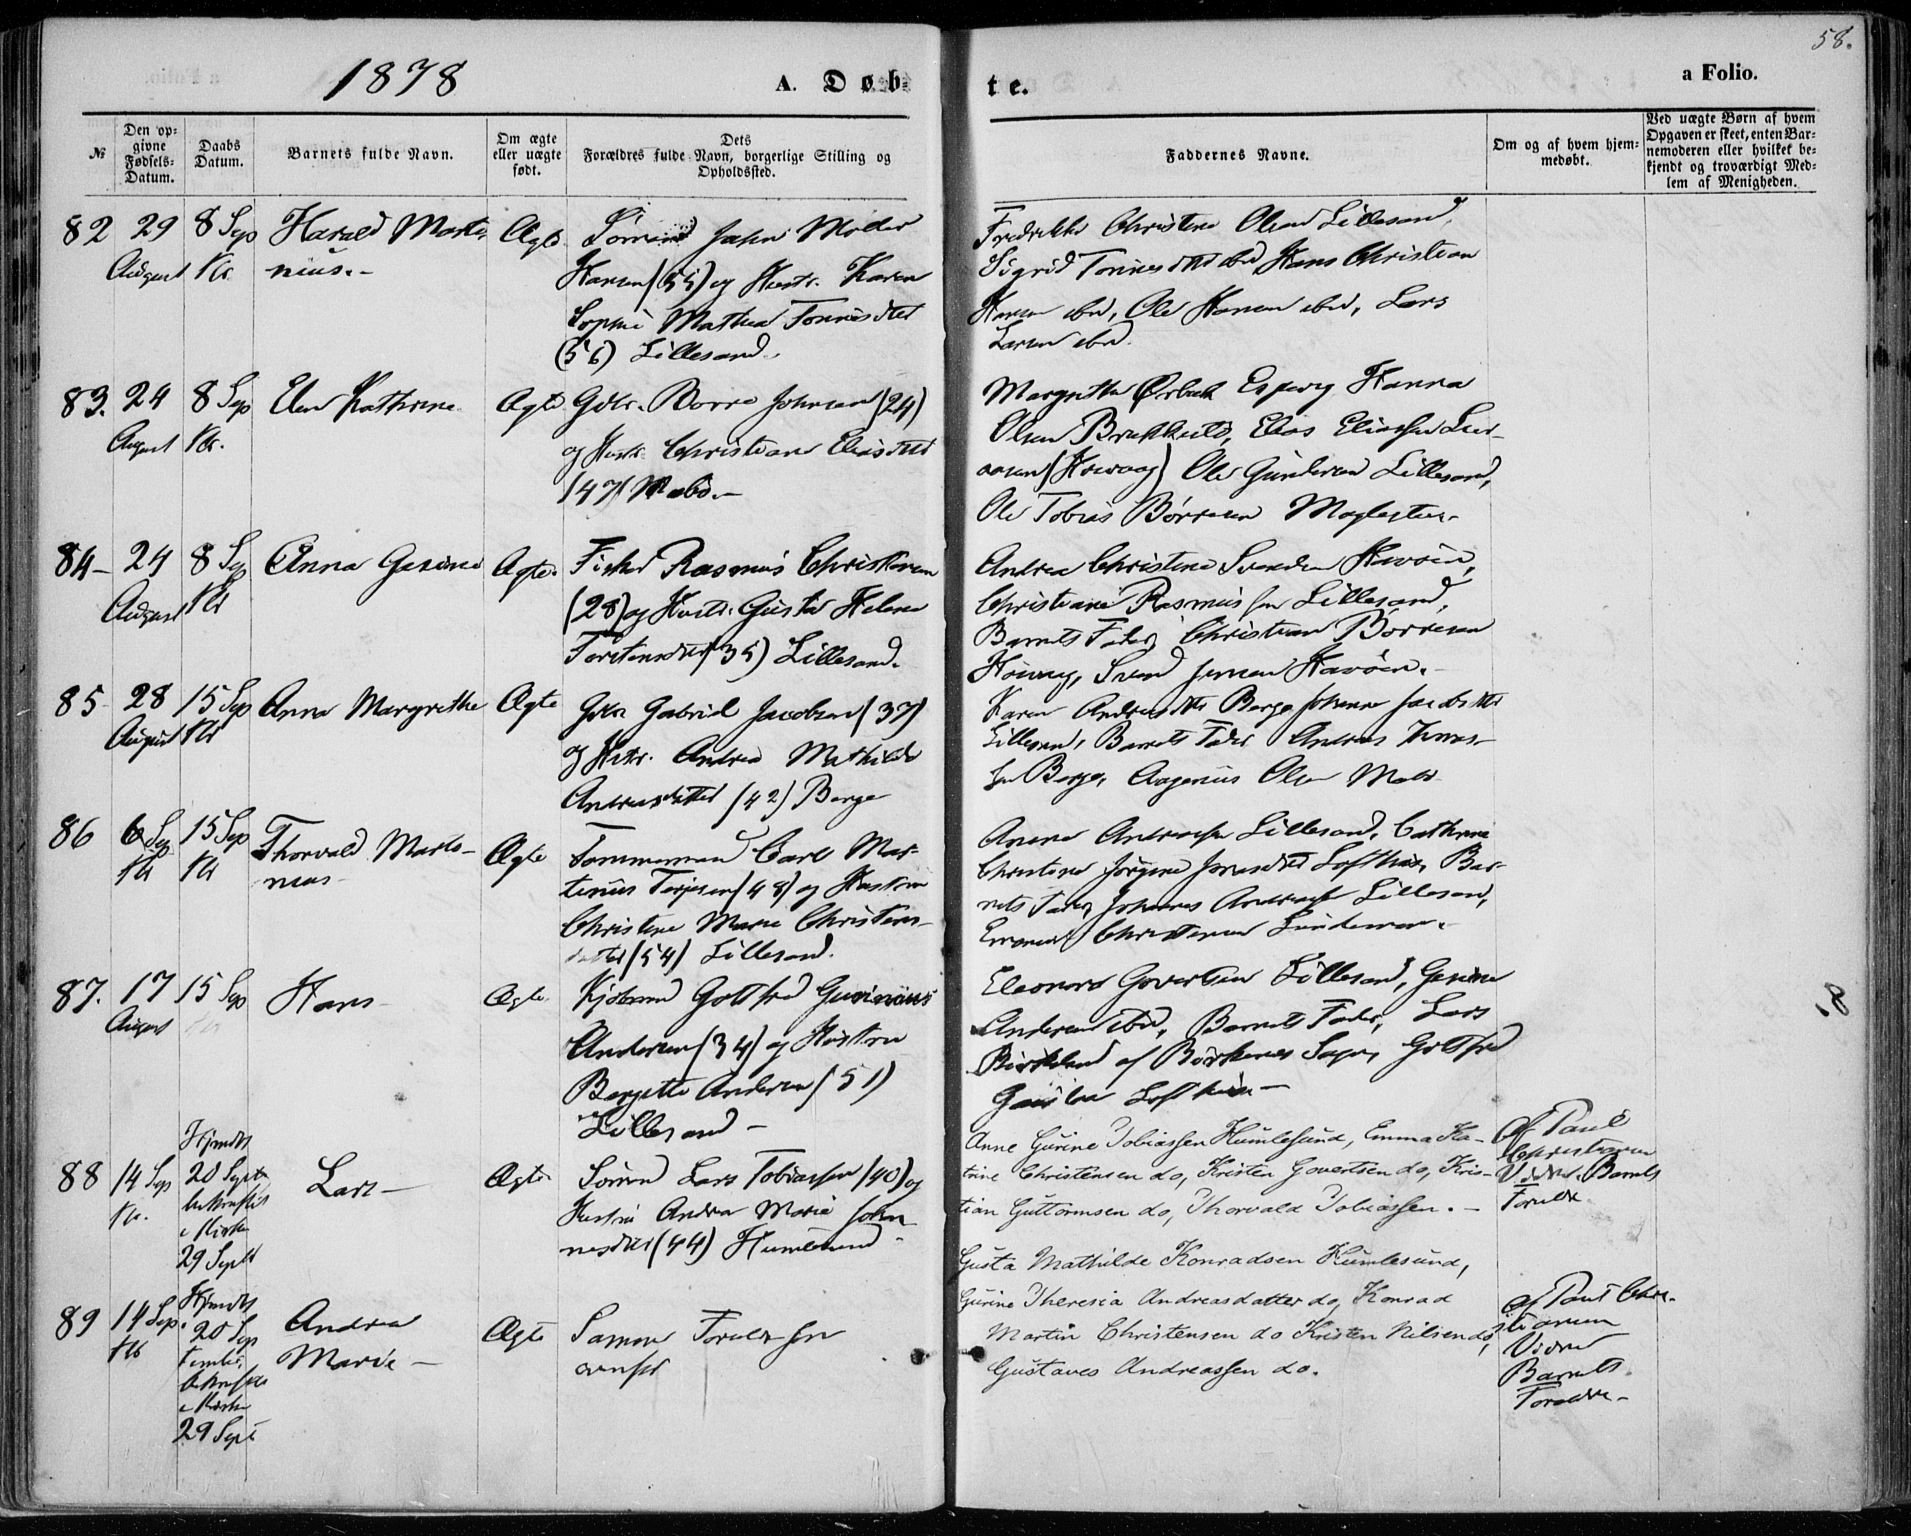 58.
1878
A. Døb-
te.
a Folio.
№
Den op-
givne
Fødsels-
Datum.
Daabs
Datum.
Barnets fulde Navn.
Om ægte
eller uægte
født.
Dets
Forældres fulde Navn, borgerlige Stilling og
Opholdssted.
Faddernes Navne.
Om og af hvem hjem-
medøbt.
Ved uægte Børn af hvem
Opgaven er skeet, enten Bar-
nemoderen eller hvilket be-
kjendt og troværdigt Med-
lem af Menigheden.
82
29
August
8 Sep
Kl.
Harald Marti-
nius.-
Ægte
Sømand John Moder
Hansen (55) og Hustr. Karen
Sophie Mathea Tonnesdtter
(56) Lillesand.
Fredrikke Christine Olsen Lillesand,
Sigrid Tonnesdtter ibd Hans Christian
Hansen ibd, Ole Hansen ibd, Lars
Larsen ibd.
83.
24
August
8 Sep
Kl.
Elen Kathrine
Ægte
Gdbr. Borre Johnsen (24)
og Hustr. Christiane Eliasdtter
(47)
Margrethe Ørbæk Hanna
Olsen Brekkelid, Elias Eliassen
(Høivaag) Ole Gundersen Lillesand,
Ole Tobias Børresen
84-
24
August
8 Sep
Kl
Anna Gesine
Ægte.
Fisker Rasmus Christensen
(28) og Hustr. Gusta Helene
Torstensdtter (35) Lillesand.
Andrea Christine Svendsen Havøen,
Christiane Rasmussen Lillesand,
Barnets Fader, Christian Børresen
Høivaag, Svend Jensen Havøen.-
85
28
August
15 Sep
Kl
Anna Margrethe
Ægte
Gdbr Gabriel Jacobsen (37)
og Hustr. Andrea Mathilde
Andreasdatter (42) Berge
Karen Andreasdtter Berge Johanne Jacobsdtter
Lillesand, Barnets Fader Andreas
sen Berge, Aagenius Olsen
86
6 Sep
Kl
15 Sep
Kl
Thorvald Marti-
nius-
Ægte
Tømmermand Carl Mar-
tinius Terjesen (48) og Hustru
Christine Marie Christens-
datter (54) Lillesand.
Andreassen Lillesand, Cathrine
Christine Jørgine Jonsdtter Lofthus, Bar-
nets Fader, Johannes Andreassen Lillesand,
Christensen
87.
17
August
15 Sep
Hans-
Ægte
Kjøbmand Gottfred
Andersen (34) og Hustru
Bergitte Andersen (51)
Lillesand-
Eleonora Govertsen Lillesand, Gesine
Andersen ibd, Barnets Fader, Lars
Birkeland af Birkenes Sogn, Gottfred
Lofthus-
18
88
14 Sep
Kl.
Hjemdbt
20 Septr
bekræftet
i Kirken
29 Septr
Lars-
Ægte
Sømd Lars Tobiassen (40) og
Hustru Andrea Marie Johan-
nesdtter (44) Humlesund-
Anne Gurine Tobiassen Humlesund, Emma Ka-
trine Christensen do, Kristen Govertsen do, Kris-
tian Guttormsen do, Thorvald Tobiassen.-
Af Paul
Christensen
Vidner. Barnets
Forældre
89
14 Sep.
Kl
Hjemdbt
20 Sep
tember
bekræftet
i Kirken
29 Sept
Andrea
Marie-
Ægte
Samme Forældre som
ovenfor
Gusta Mathilde Konradsen Humlesund,
Gurine Theresia Andreasdatter do, Konrad
Martin Christensen do Kristen Nilsen do,
Gustaves Andreassen do.
af Paul Chri-
stensen
Vidner
Barnets
Forældre-